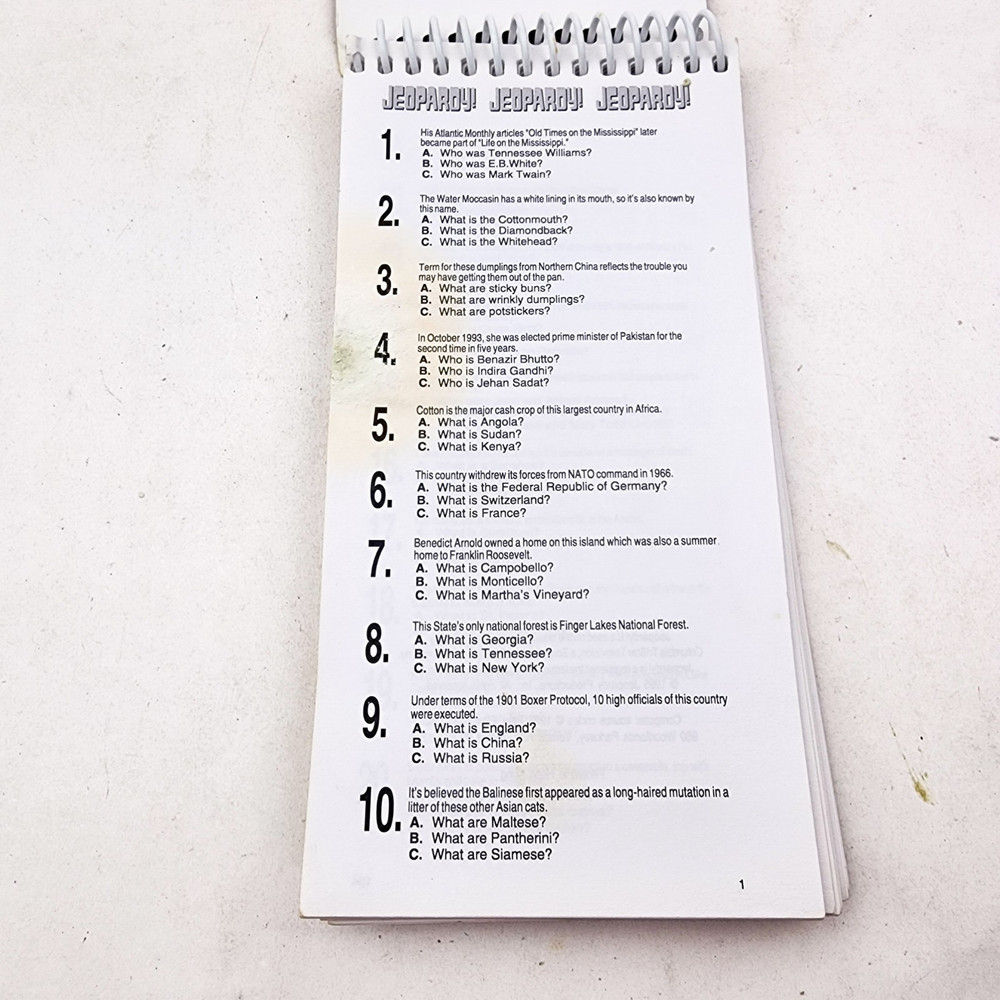 JEOPARDY! JEOPARDY! JEOPARDY!
1. His Atlantic Monthly articles "Old Times on the Mississippi" later
became part of "Life on the Mississippi."
A. Who was Tennessee Williams?
B. Who was E.B.White?
C. Who was Mark Twain?
2. The Water Moccasin has a white lining in its mouth, so it's also known by
this name.
A. What is the Cottonmouth?
B. What is the Diamondback?
C. What is the Whitehead?
3. Term for these dumplings from Northern China reflects the trouble you
may have getting them out of the pan.
A. What are sticky buns?
B. What are wrinkly dumplings?
C. What are potstickers?
4. In October 1993, she was elected prime minister of Pakistan for the
second time in five years.
A. Who is Benazir Bhutto?
B. Who is Indira Gandhi?
C. Who is Jehan Sadat?
5. Cotton is the major cash crop of this largest country in Africa.
A. What is Angola?
B. What is Sudan?
C. What is Kenya?
6. This country withdrew its forces from NATO command in 1966.
A. What is the Federal Republic of Germany?
B. What is Switzerland?
C. What is France?
7. Benedict Arnold owned a home on this island which was also a summer
home to Franklin Roosevelt.
A. What is Campobello?
B. What is Monticello?
C. What is Martha's Vineyard?
8. This State's only national forest is Finger Lakes National Forest.
A. What is Georgia?
B. What is Tennessee?
C. What is New York?
9. Under terms of the 1901 Boxer Protocol, 10 high officials of this country
were executed.
A. What is England?
B. What is China?
C. What is Russia?
10. It's believed the Balinese first appeared as a long-haired mutation in a
litter of these other Asian cats.
A. What are Maltese?
B. What are Pantherini?
C. What are Siamese?
1